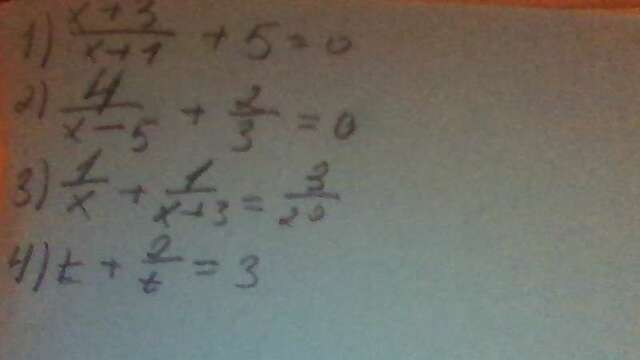 1) (x+3)/(x+1) + 5 = 0
2) 4/(x-5) + 2/3 = 0
3) 1/x + 1/(x+3) = 3/20
4) t + 2/t = 3